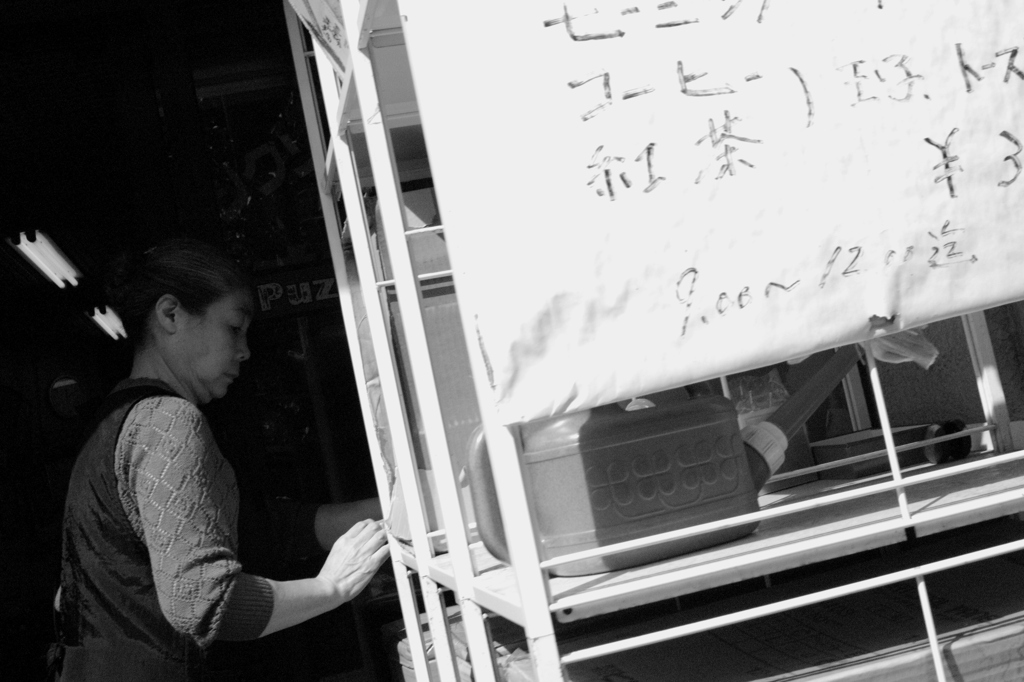 モーニング
コーヒー) 玉子、トース
紅茶 ¥3
9.00～12.00迄
PUZ